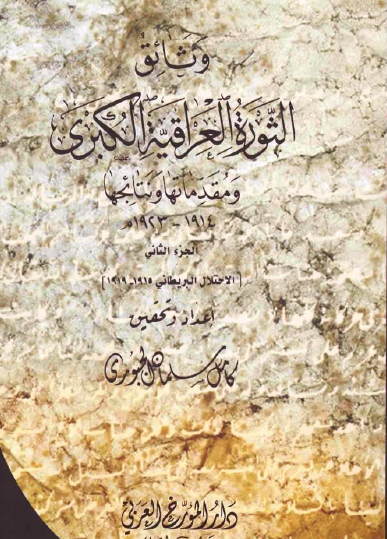 وثائق
الثورة العراقية الكبرى
ومقدماتها ونتائجها
١٩١٤ - ١٩٢٣م
الجزء الثاني
[الاحتلال البريطاني ١٩١٥-١٩١٩]
إعداد وتحقيق
كامل سلمان الجبوري
دار المؤرخ العربي